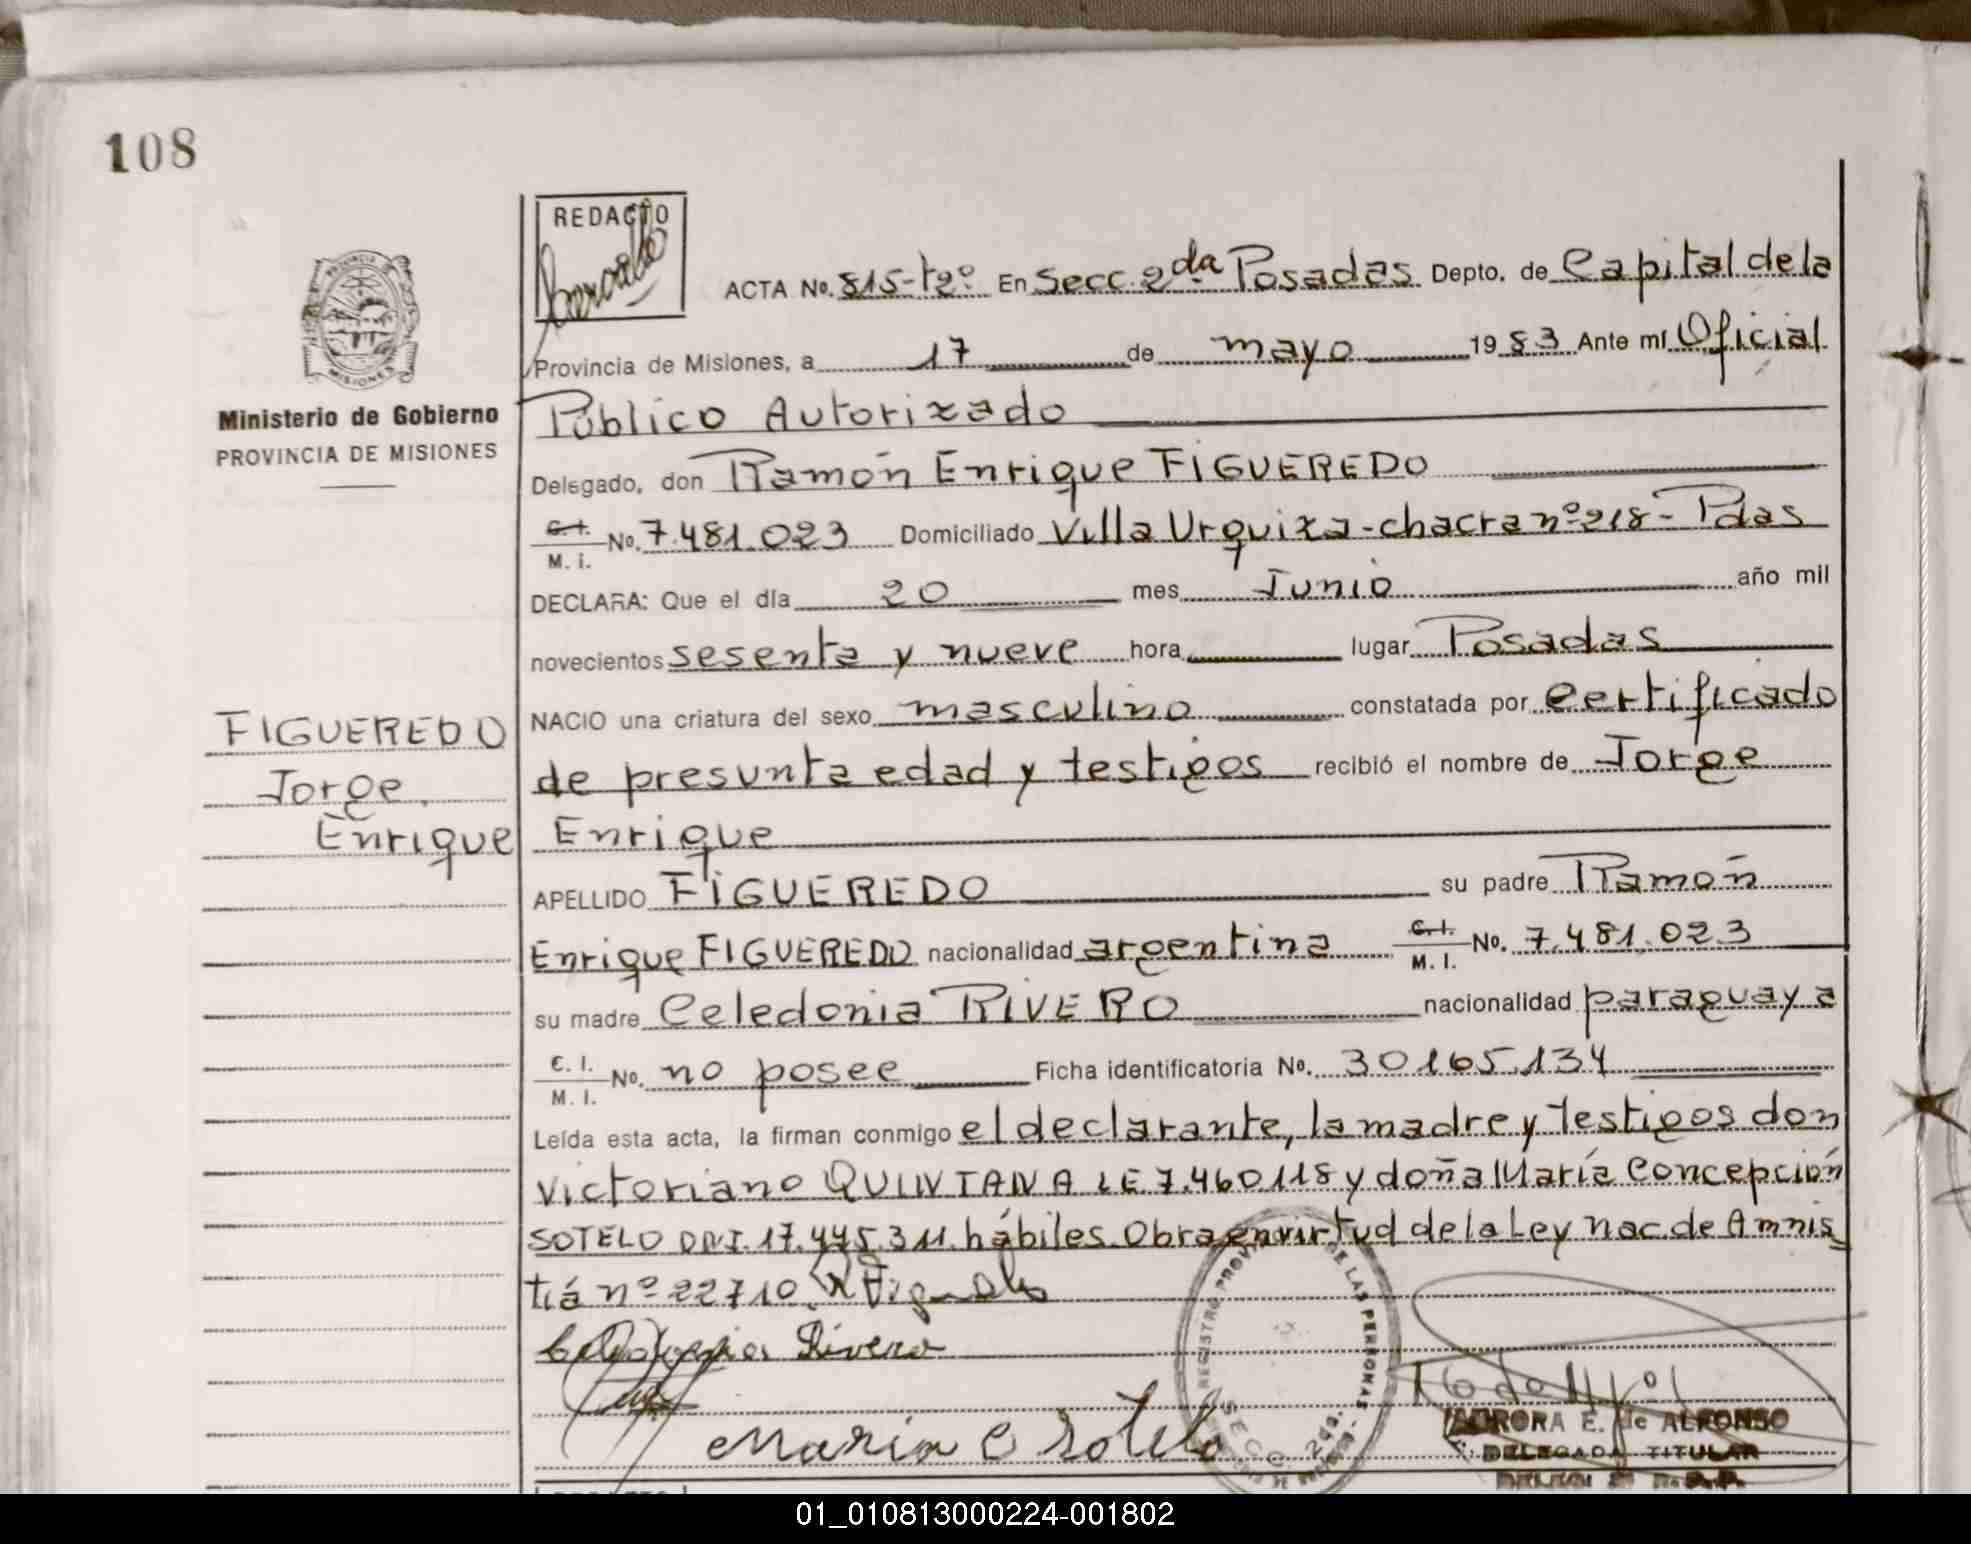 108
REDACTO
ACTA No. 815-tº2º En Secc. 2da Posadas Depto. de Capital de la
Provincia de Misiones, a 17 de mayo 1983 Ante mí Oficial
Público Autorizado
Ministerio de Gobierno
PROVINCIA DE MISIONES
Delegado, don Ramón Enrique FIGUEREDO
C.I. M. i. No. 7.481.023 Domiciliado Villa Urquiza - chacra nº 218 - Pdas
DECLARA: Que el día 20 mes Junio año mil
novecientos sesenta y nueve hora lugar Posadas
FIGUEREDO
Jorge
Enrique
NACIO una criatura del sexo masculino constatada por Certificado
de presunta edad y testigos recibió el nombre de Jorge
Enrique
APELLIDO FIGUEREDO su padre Ramón
Enrique FIGUEREDO nacionalidad argentina C.I. M. I. No. 7.481.023
su madre Celedonia RIVERO nacionalidad paraguaya
C. I. M. I. No. no posee Ficha identificatoria No. 30165.134
Leída esta acta, la firman conmigo el declarante, la madre y testigos don
Victoriano QUINTANA LE 7.460118 y doña María Concepción
SOTELO DNI. 17.445.311. hábiles. Obra en virtud de la Ley Nac. de Amnis
tiá nº 22710.
Rivero
Maria C Sotelo
REGISTRO PROV DE LAS PERSONAS
SECC. 2da.
AURORA E. de ALFONSO
DELEGADA TITULAR
01_010813000224-001802